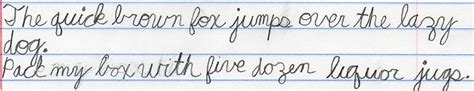 The quick brown fox jumps over the lazy
dog.
Pack my box with five dozen liquor jugs.